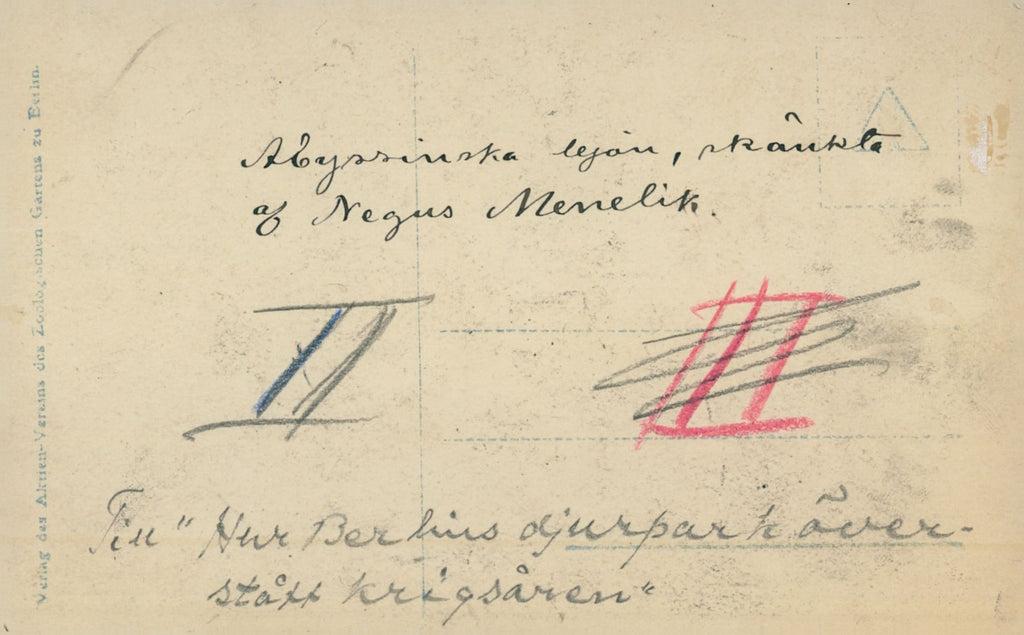 Verlag des Aktien-Vereins des Zoologischen Gartens zu Berlin.
Abyssinska lejon, skänkta
af Negus Menelik.
II
III
Till "Hur Berlins djurpark över-
stått krigsåren"